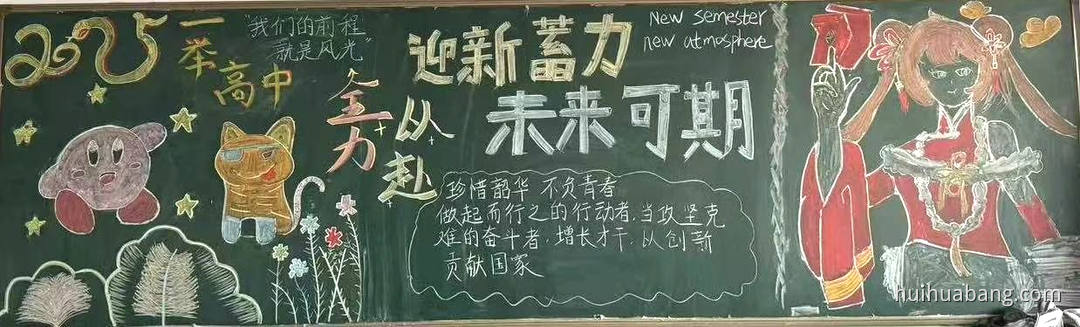 2025
一举高中
"我们的前程
就是风光"
全力以赴
迎新蓄力
未来可期
New semester
new atmosphere
珍惜韶华 不负青春
做起而行之的行动者,当攻坚克
难的奋斗者,增长才干,以创新
贡献国家
huihuabang.com